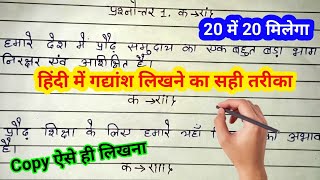 प्रश्नोत्तर 1. क →
20 में 20 मिलेगा
हमारे देश में प्रौढ़ समुदाय का एक बहुत बड़ा भाग
निरक्षर एवं अशिक्षित है।
हिंदी में गद्यांश लिखने का सही तरीका
क →
प्रौढ़ शिक्षा के लिए हमारे यहाँ का अभाव
है।
Copy ऐसे ही लिखना
क →